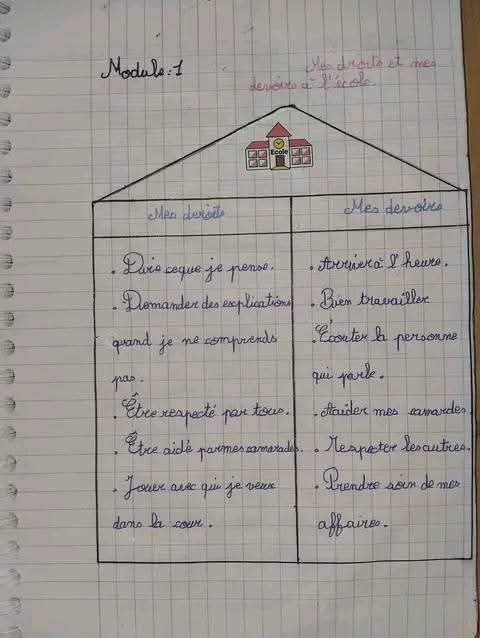 Module: 1
Mes droits et mes
devoirs à l'école
Ecole
Mes droits
Mes devoirs
. Dois ce que je pense.
. Demander des explications
quand je ne comprends
pas.
. Être respecté par tous.
. Être aidé par mes camarades.
. Jouer avec qui je veux
dans la cour.
. Arriver à l'heure.
. Bien travailler
. Écouter la personne
qui parle.
. Aider mes camardes.
. Respecter les autres.
. Prendre soin de mes
affaires.